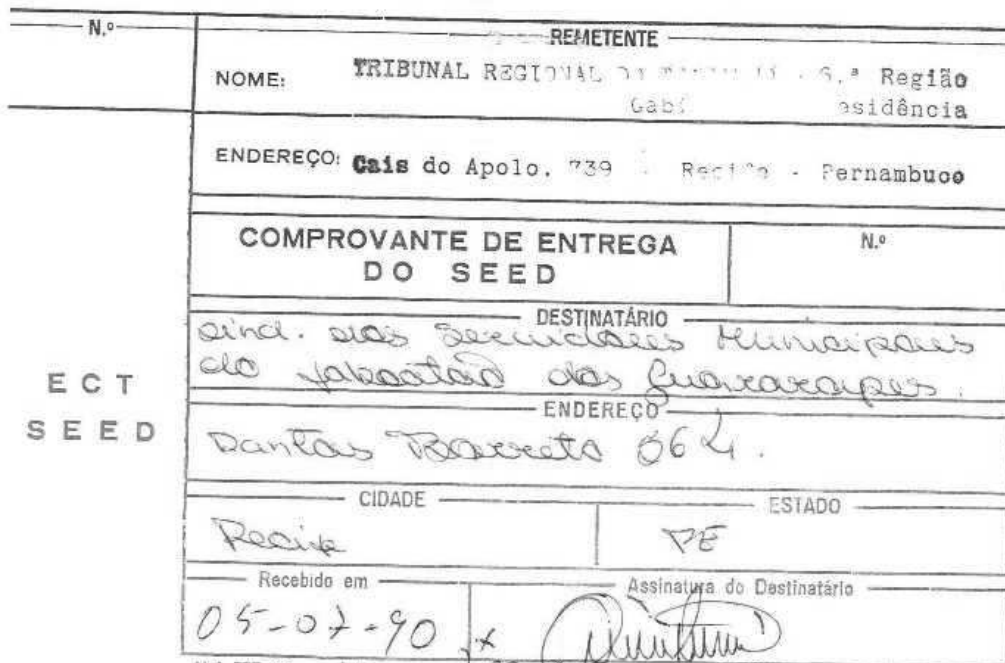 N.º
REMETENTE
NOME: TRIBUNAL REGIONAL 6.ª Região
ENDEREÇO: Cais do Apolo, 739 - Recife - Pernambuco
COMPROVANTE DE ENTREGA
DO SEED
N.º
DESTINATÁRIO
Sind. dos Servidores Municipais
do Jaboatão dos Guararapes.
ECT
SEED
ENDEREÇO
Dantas Barreto 564.
CIDADE
ESTADO
Recife
PE
Recebido em
Assinatura do Destinatário
05-07-90 x